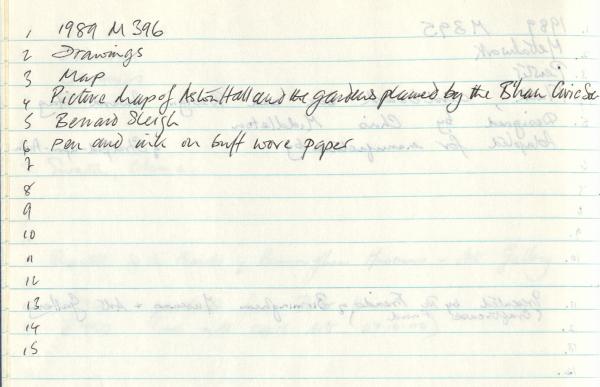 1 1989 M 396
2 Drawings
3 Map
4 Picture Map of Aston Hall and the gardens planned by the B'ham Civic Soc
5 Bernard Sleigh
6 Pen and ink on buff wove paper
7
8
9
10
11
12
13
14
15